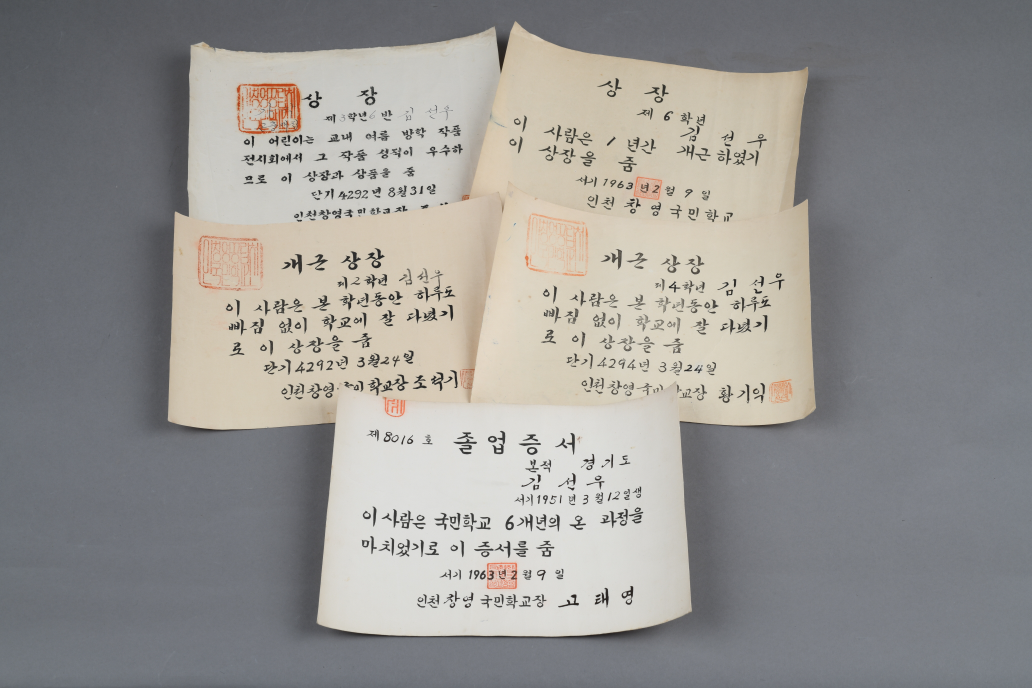 상 장
제3학년6반 김선우
이 어린이는 교내 여름 방학 작품
전시회에서 그 작품 성적이 우수하
므로 이 상장과 상품을 줌
단기4292년 8월31일
인천창영국민학교장
상 장
제6학년
김 선우
이 사람은 1년간 개근하였기
이 상장을 줌
서기1963년2월9일
인천창영국민학교
개근 상장
제2학년 김선우
이 사람은 본 학년동안 하루도
빠짐 없이 학교에 잘 다녔기
로 이 상장을 줌
단기4292년 3월24일
인천창영 학교장
개근 상장
제4학년 김선우
이 사람은 본 학년동안 하루도
빠짐 없이 학교에 잘 다녔기
로 이 상장을 줌
단기4294년 3월24일
인천창영국 교장 황기익
제8016호 졸업증서
본적 경기도
김 선우
서기1951년 3월12일생
이 사람은 국민학교 6개년의 온 과정을
마치었기로 이 증서를 줌
서기 1963년2월9일
인천창영국민학교장 고태영